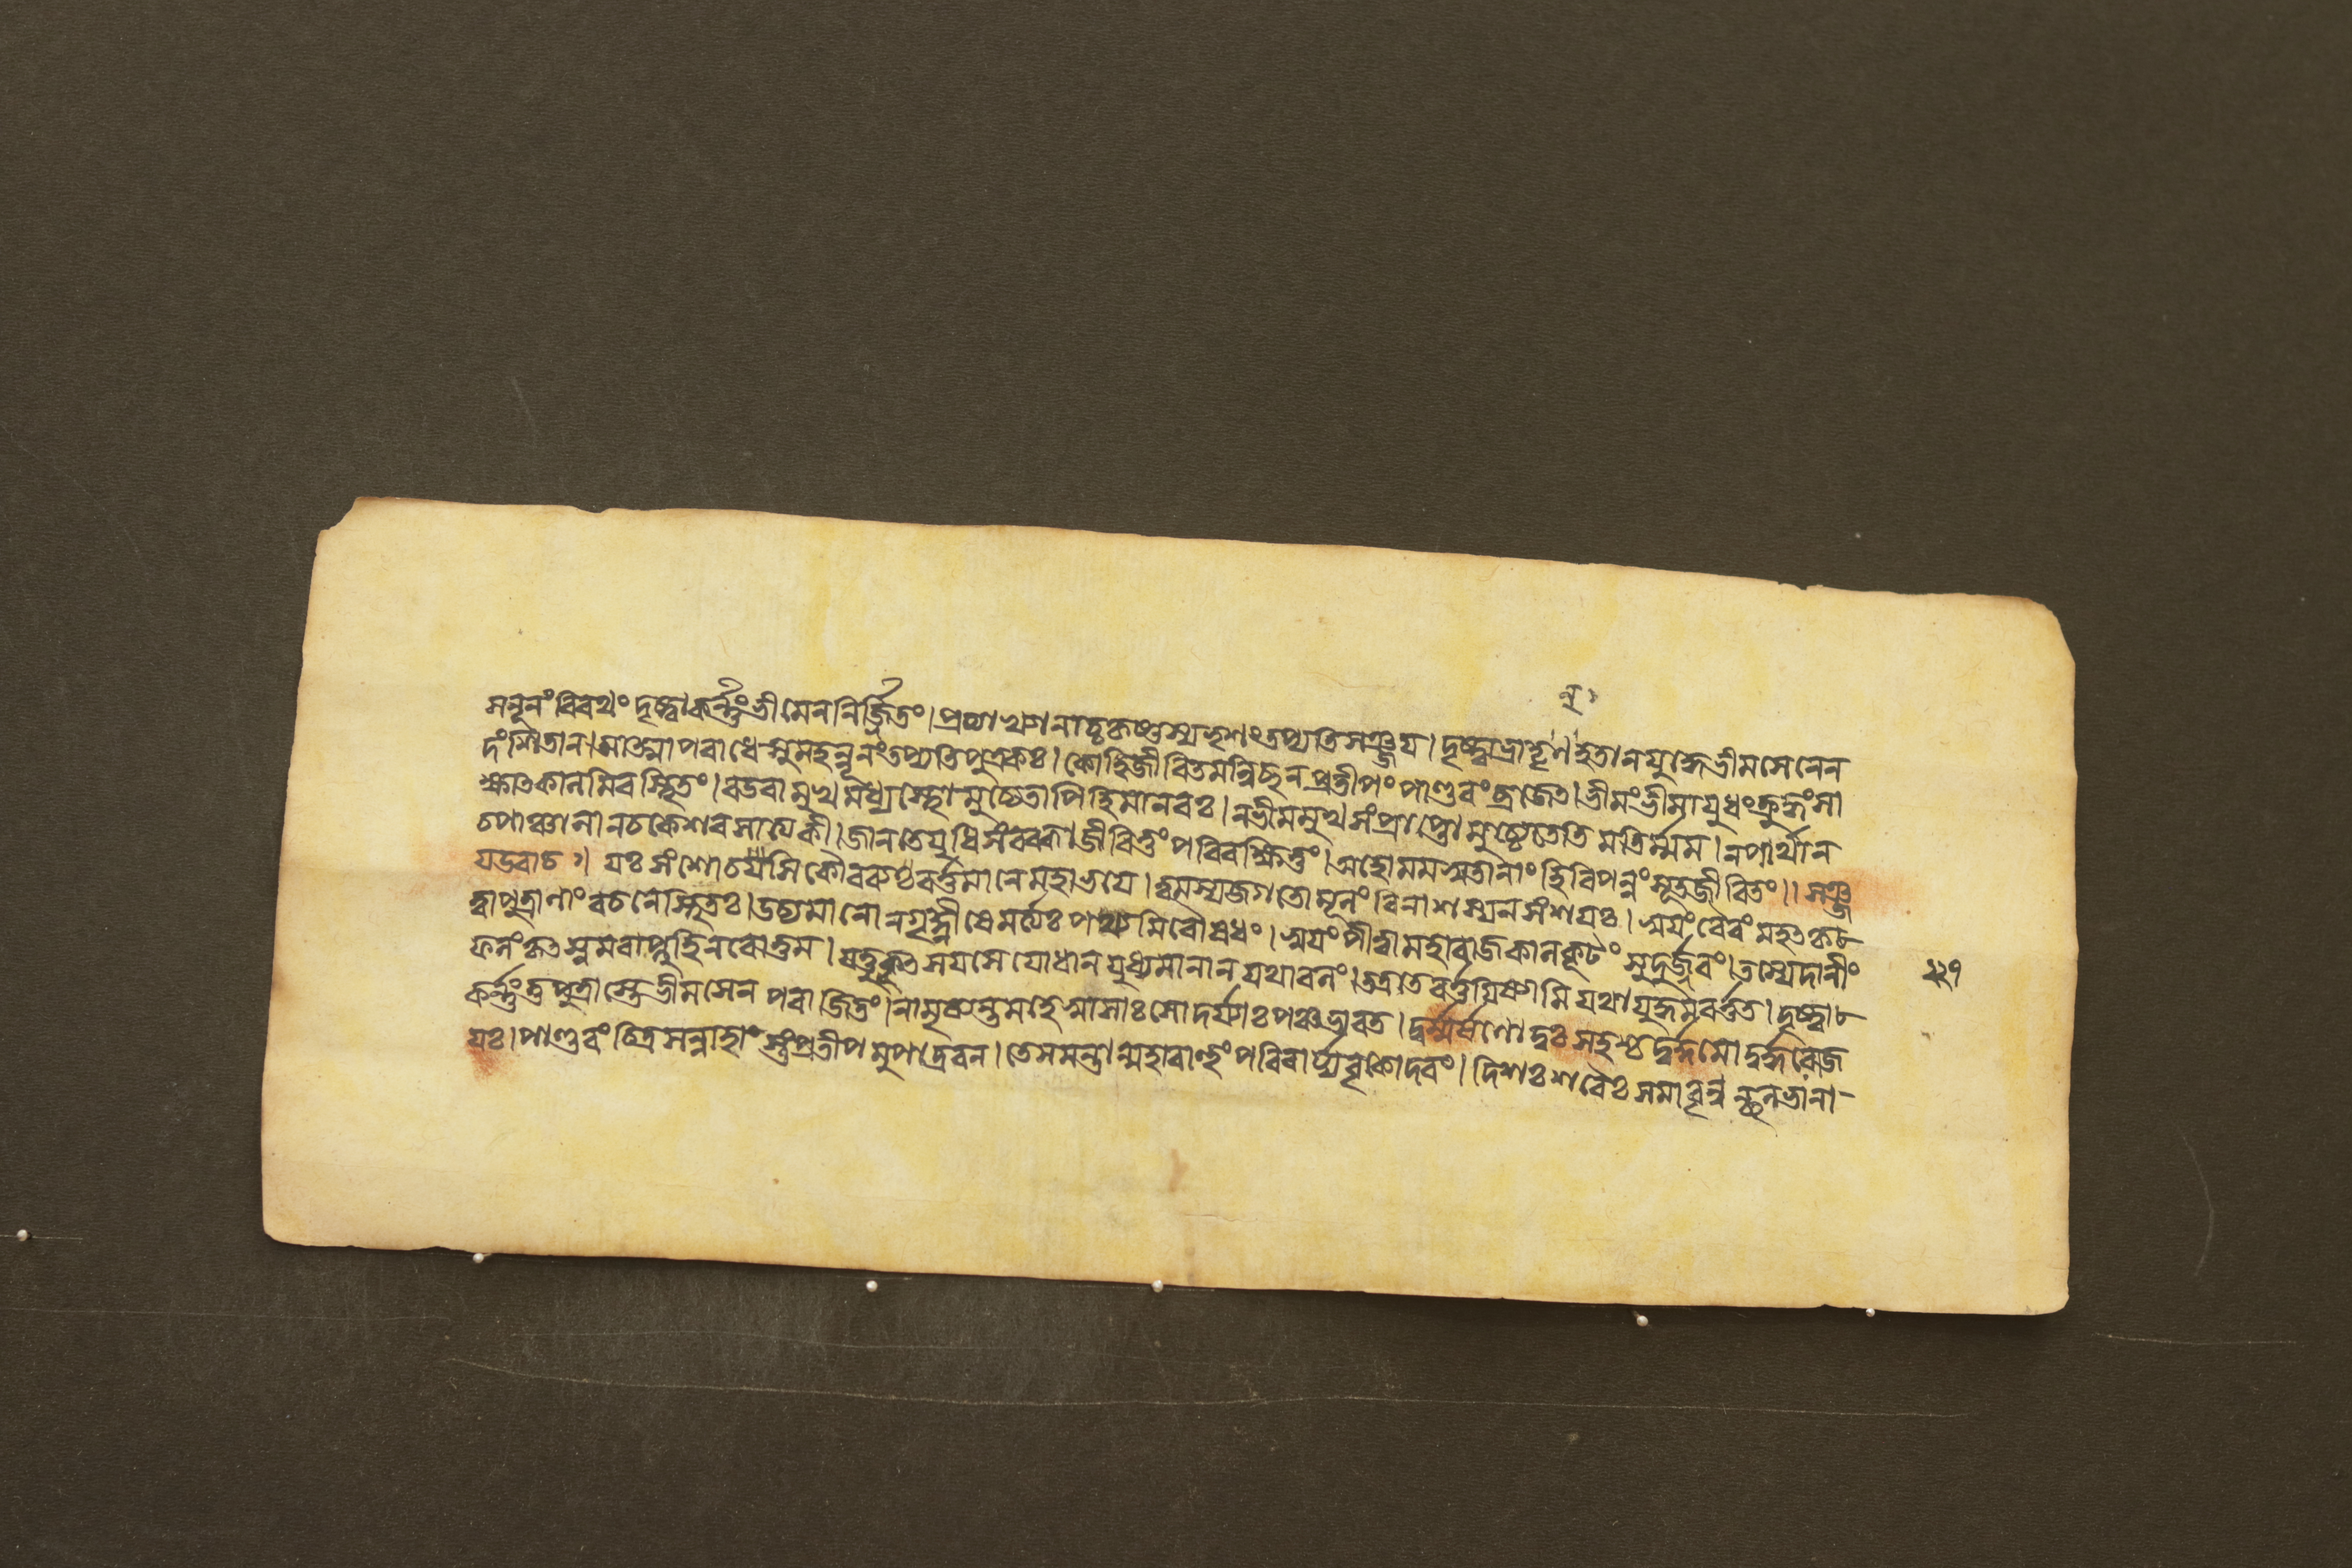 সনূনং বিরথং দৃষ্ট্বা কর্ণ্ণং ভীমেন নির্জ্জিতং। প্রত্যাখ্যানাচ্চ কৃষ্ণস্য ভৃশং তপ্যতি সঞ্জয। দৃষ্ট্বা ভ্রাতৄন্ হতান যুদ্ধে ভীমসেনেন
দংশিতান। আত্মাপরাধে সুমহন্নূনং তপ্যতি পুত্রকঃ। কোহি জীবিতমন্বিচ্ছন প্রতীপং পাণ্ডবং ব্রজেত। ভীমং ভীমাযুধং ক্রুদ্ধং সা
ক্ষাৎকালমিব স্থিতং। বডবামুখমধ্যস্থো মুচ্যেতাপি হি মানবঃ। ন ভীমমুখসংপ্রাপ্তো মুচ্যেতেতি মতির্ম্মম। ন পার্থা ন
চ পাঞ্চালা ন চ কেশবসাত্যকী। জানতে যুধি সংরব্ধা জীবিতুং পরিরক্ষিতুং। অহো মম সুতানাং হি বিপন্নং সূত জীবিতং।। সঞ্জ
য উবাচ।। যঃ সংশোচসি কৌরব্য বর্ত্তমানে মহাভযে। ত্বমস্য জগতো মূলং বিনাশস্য ন সংশযঃ। স্বযং বৈরং মহৎ কৃ
ত্বা পুত্রাণাং বচনে স্থিতঃ। উচ্যমানো ন গৃহ্ণীষে মর্ত্ত্যঃ পথ্যমিবৌষধং। স্বযং পীত্বা মহারাজ কালকূটং সুদুর্জ্জরং। তস্যেদানীং
ফলং কৃৎস্নমবাপ্নুহি নরোত্তম। যত্তু কুৎসযসে যোধান যুধ্যমানান যথাবলং। তত্র তে বর্ত্তযিষ্যামি যথা যুদ্ধমবর্ত্তত। দৃষ্ট্বা
কর্ণ্ণং তু পুত্রাস্তে ভীমসেনপরাজিতং। নামৃষ্যন্ত মহেষ্বাসাঃ সোদর্য্যাঃ পঞ্চ ভারত। দুর্ম্মর্ষণো দুঃসহশ্চ দুর্ম্মদো দুর্দ্ধরো জ
যঃ। পাণ্ডবং চিত্রসন্নাহাস্তং প্রতীপমুপাদ্রবন। তে সমন্তান্মহাবাহুং পরিবার্য্য বৃকোদরং। দিশঃ শরৈঃ সমাবৃণ্বন্ শলভানা-